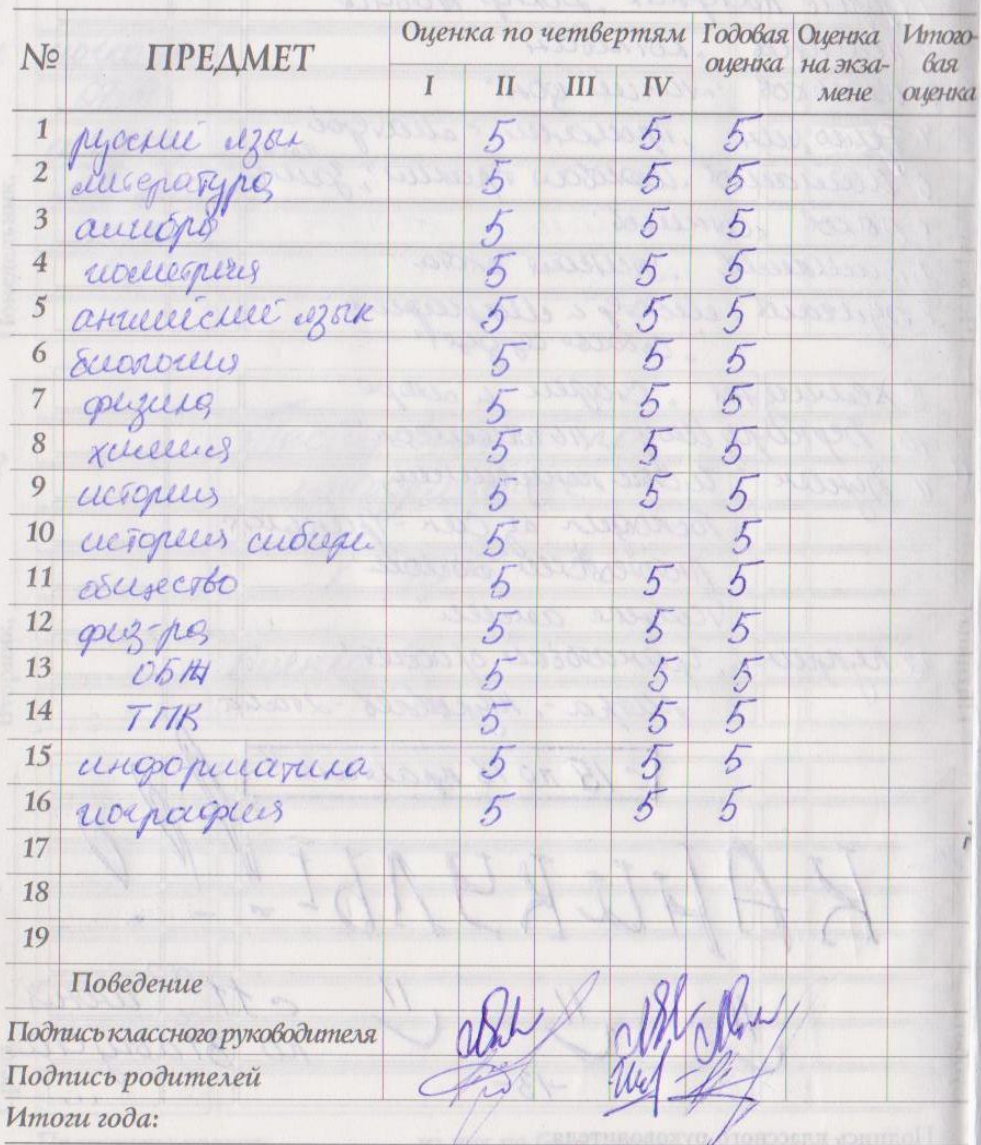 № ПРЕДМЕТ Оценка по четвертям Годовая оценка Оценка на экза-мене Итого-вая оценка
I II III IV
1 русский язык 5 5 5
2 литература 5 5 5
3 алгебра 5 5 5
4 геометрия 5 5 5
5 английский язык 5 5 5
6 биология 5 5 5
7 физика 5 5 5
8 химия 5 5 5
9 история 5 5 5
10 история сибири 5 5
11 общество 5 5 5
12 физ-ра 5 5 5
13 ОБЖ 5 5 5
14 ТПК 5 5 5
15 информатика 5 5 5
16 география 5 5 5
17
18
19
Поведение
Подпись классного руководителя
Подпись родителей
Итоги года: